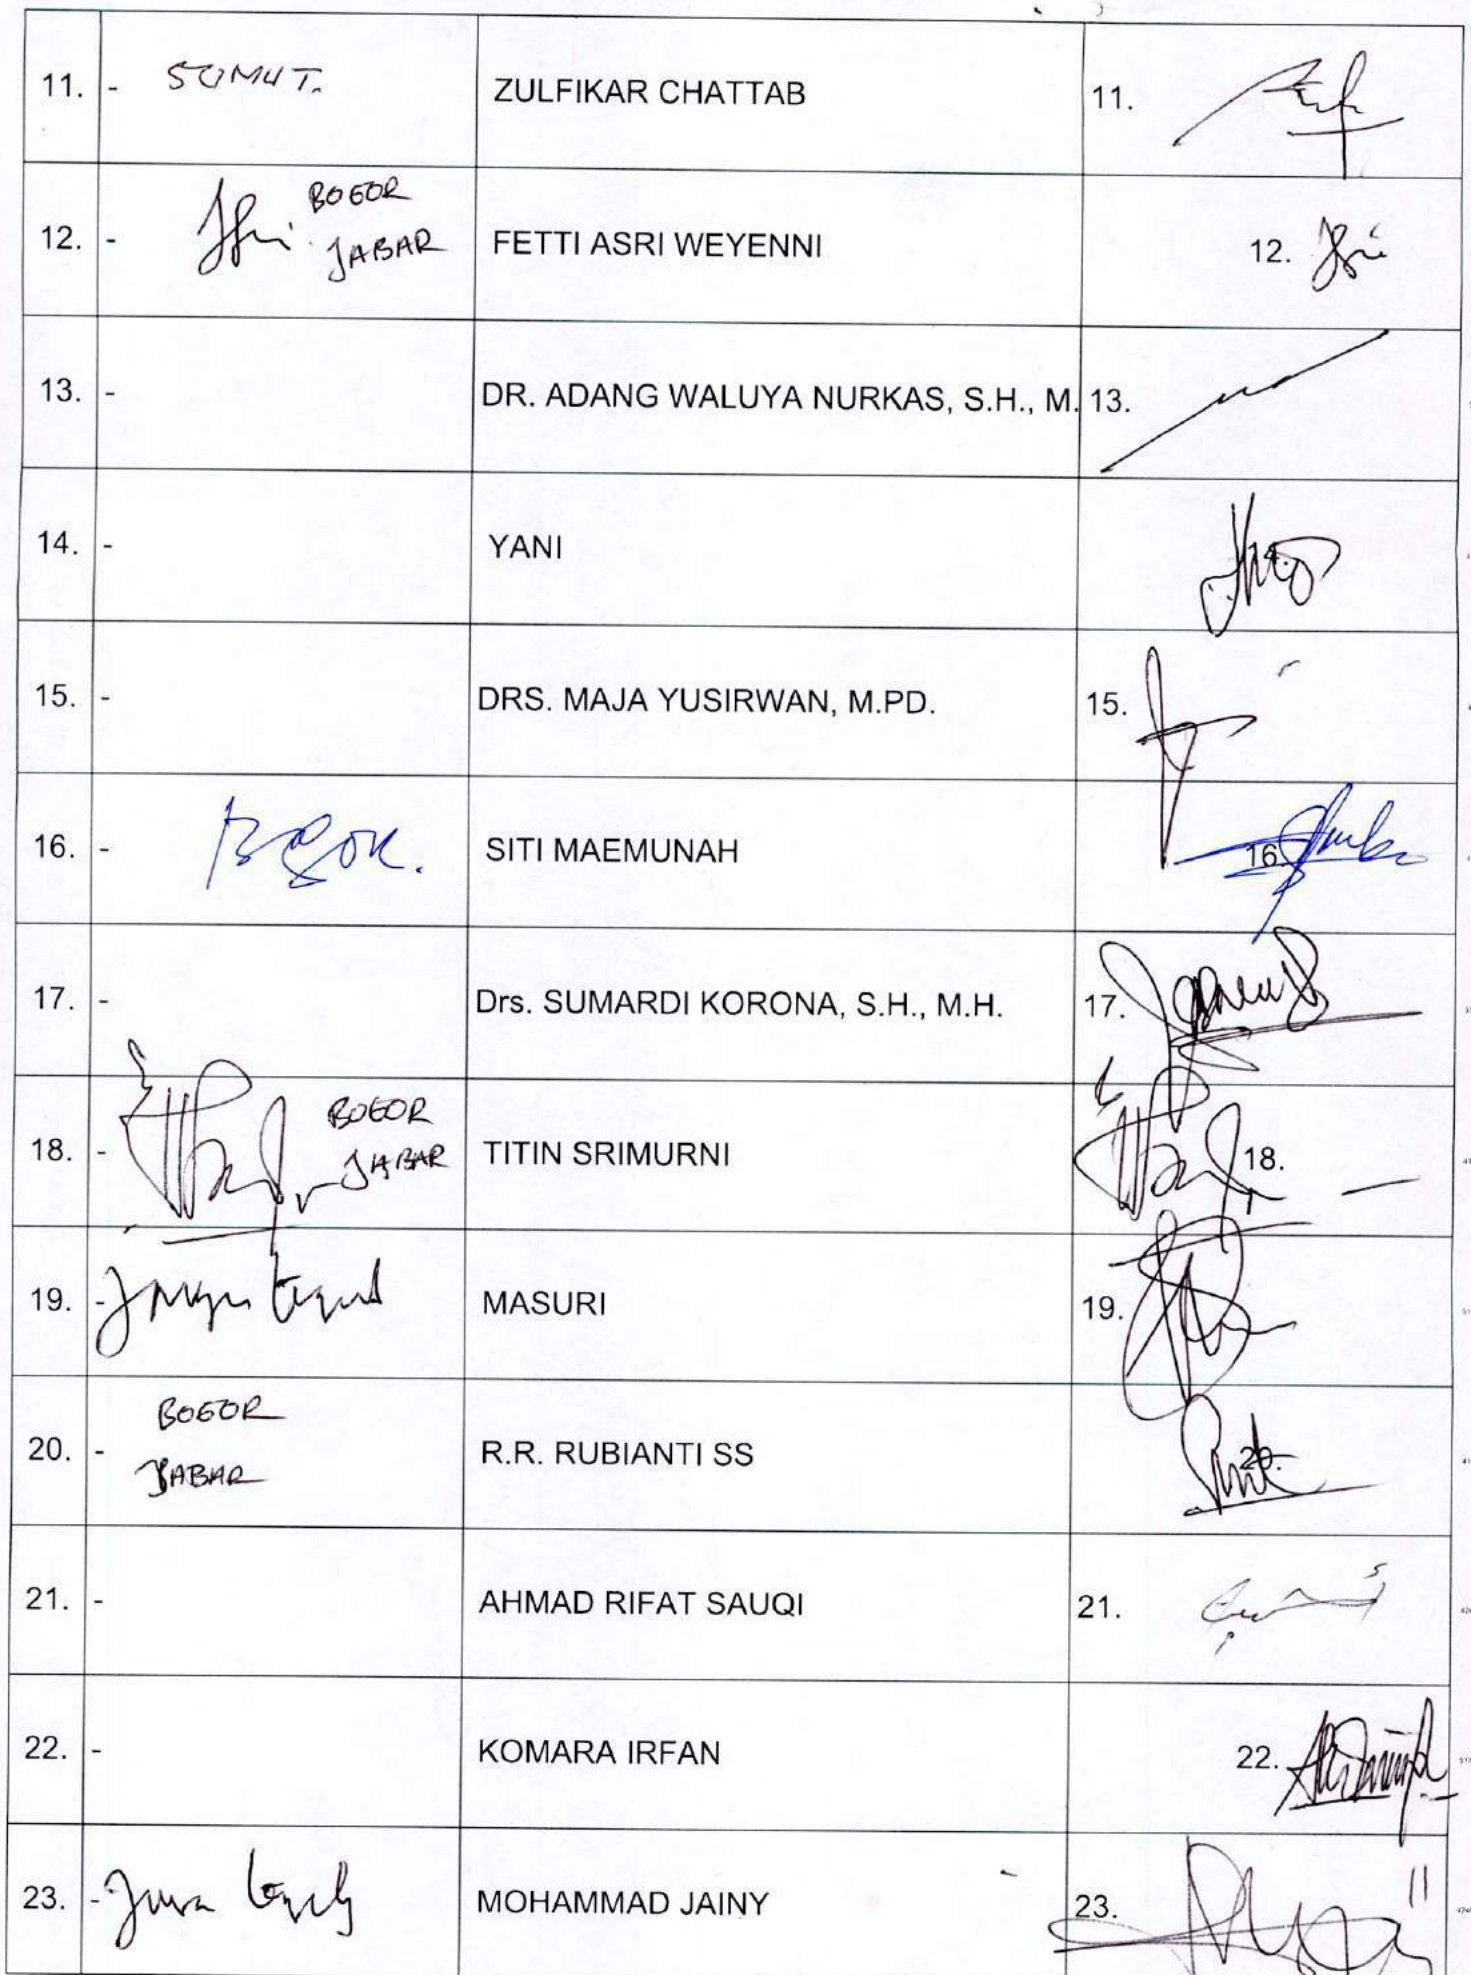 11. - SUMUT. ZULFIKAR CHATTAB 11.
12. - BOGOR JABAR FETTI ASRI WEYENNI 12.
13. - DR. ADANG WALUYA NURKAS, S.H., M. 13.
14. - YANI 14.
15. - DRS. MAJA YUSIRWAN, M.PD. 15.
16. - BOGOR. SITI MAEMUNAH 16.
17. - Drs. SUMARDI KORONA, S.H., M.H. 17.
18. - BOGOR JABAR TITIN SRIMURNI 18.
19. - MASURI 19.
20. - BOGOR JABAR R.R. RUBIANTI SS 20.
21. - AHMAD RIFAT SAUQI 21.
22. - KOMARA IRFAN 22.
23. - MOHAMMAD JAINY 23.